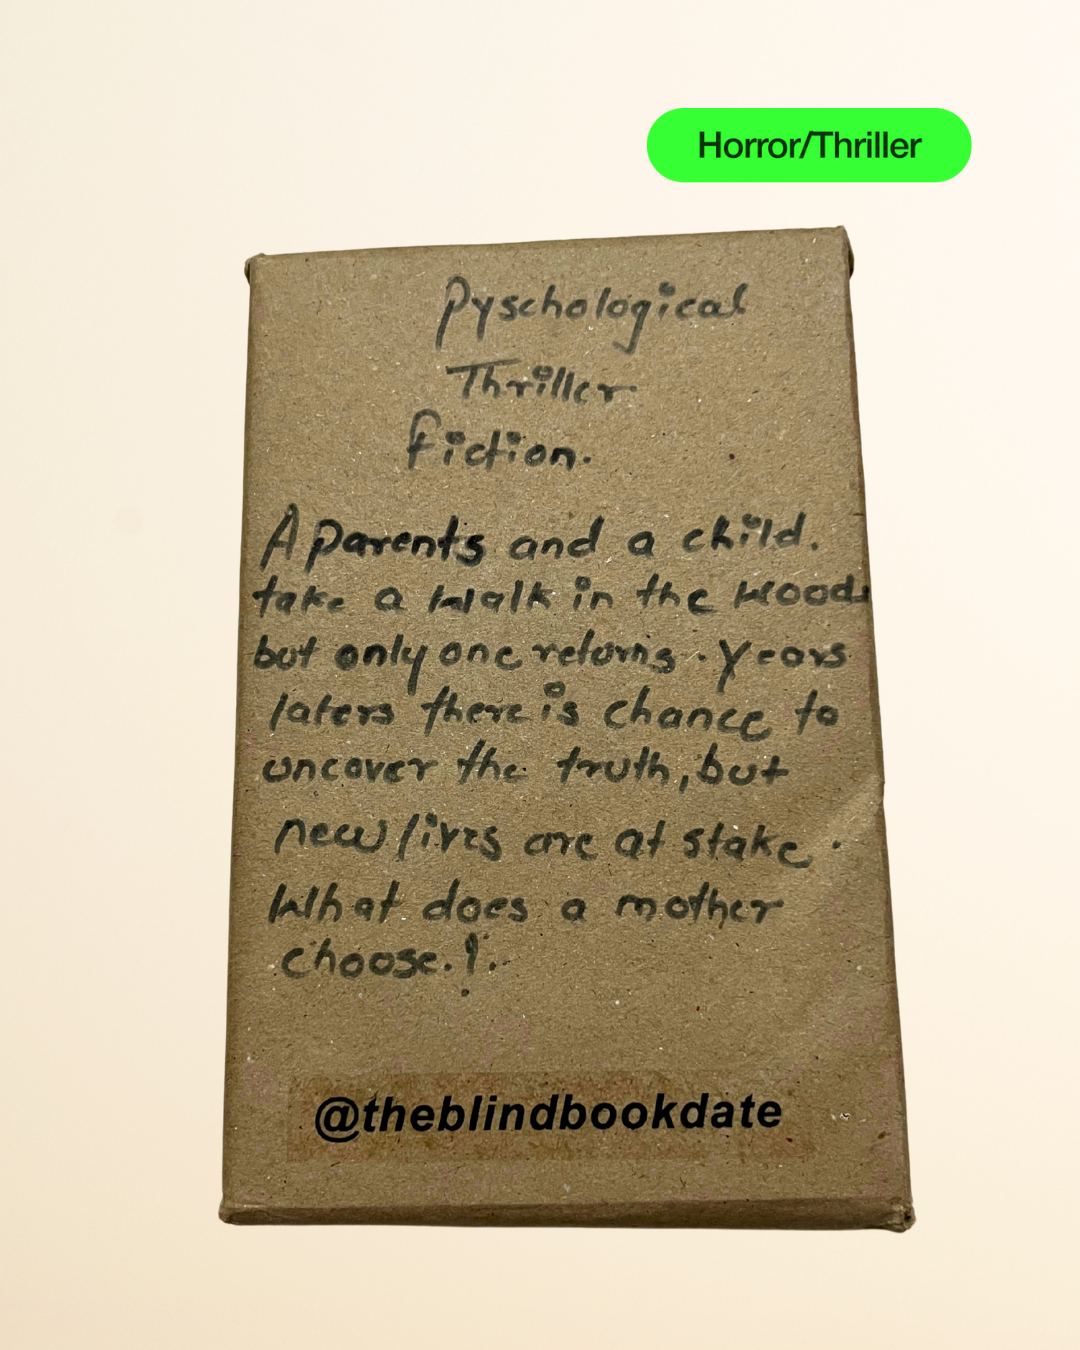 Horror/Thriller
Pyschological
Thriller
fiction.
A parents and a child.
take a walk in the woods
but only one returns. Years
laters there is chance to
uncover the truth, but
new lives are at stake.
What does a mother
choose.!.
@theblindbookdate